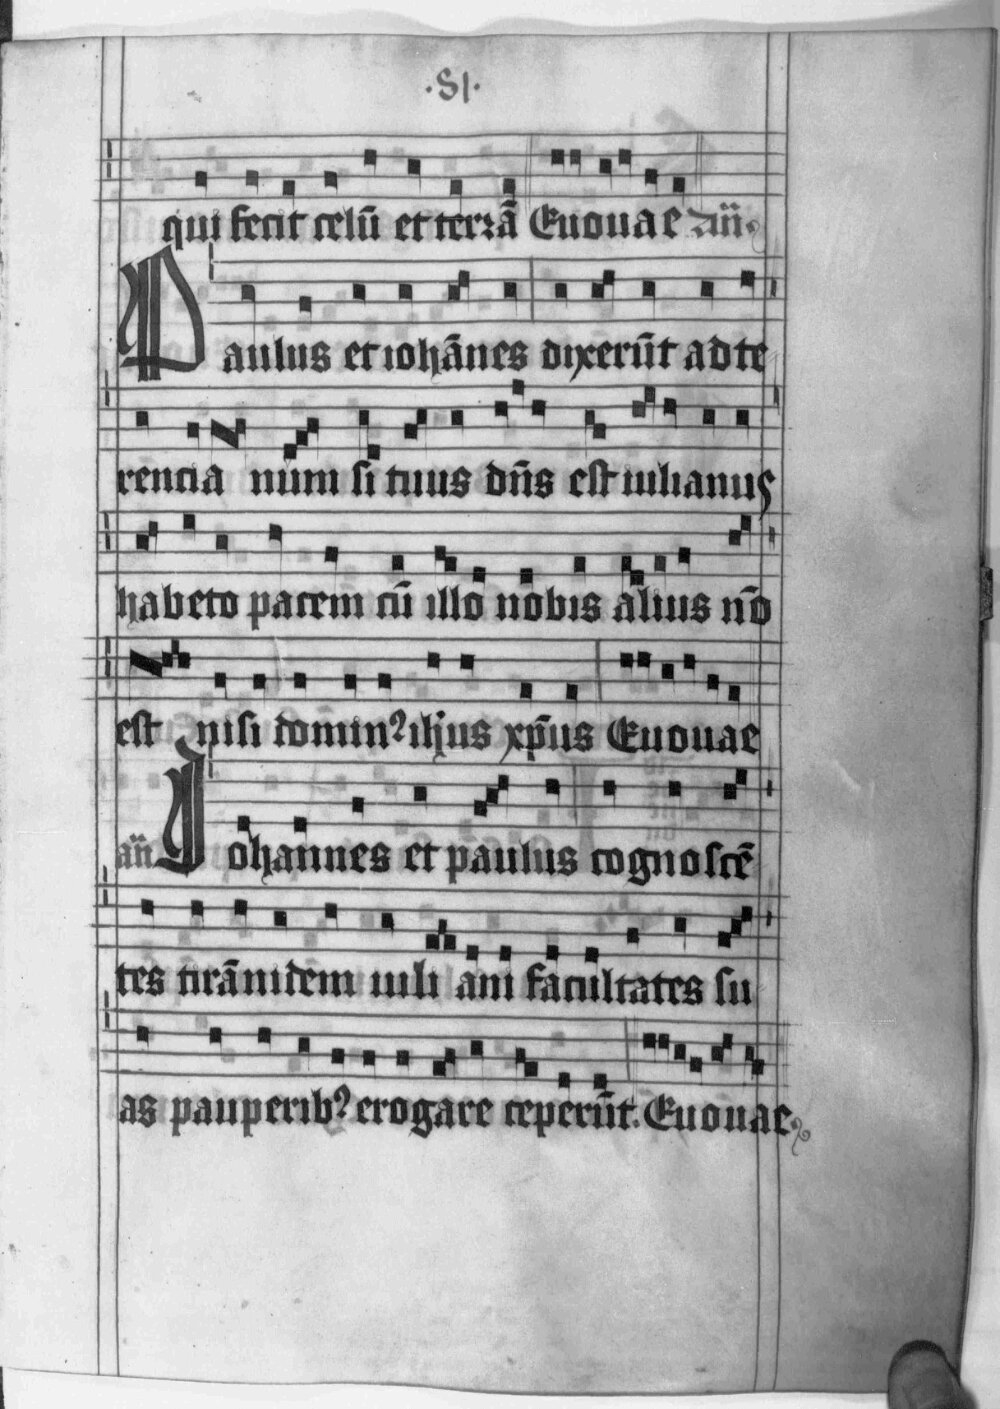 ·S|·
qui fecit celū et terrā Euouae añ
Paulus et iohānes dixerūt ad te
rencia num si tuus dñs est iulianus
habeto pacem cū illo nobis alius nō
est nisi dominꝰ ihus xp̄us Euouae
añ Johannes et paulus cognoscē
tes tirānidem iuli ani facultates su
as pauperibꝰ erogare ceperūt. Euouae